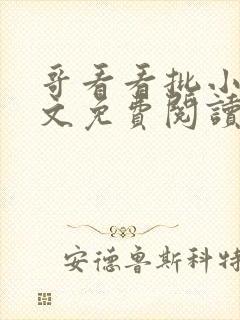 哥看看批小
文免費閱讀
安德鲁斯科特